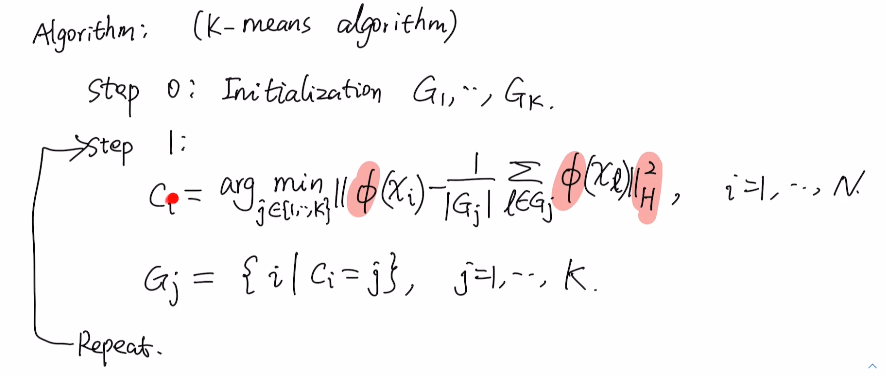 Algorithm: (K-means algorithm)
Step 0: Initialization G₁, ‥, G_K.
Step 1:
C_i = arg min_{j∈{1,‥,K}} ‖ϕ(x_i) − 1/|G_j| ∑_{ℓ∈G_j} ϕ(x_ℓ)‖²_H , i=1, ‥, N.
G_j = { i | C_i = j }, j=1, ‥, K.
Repeat.